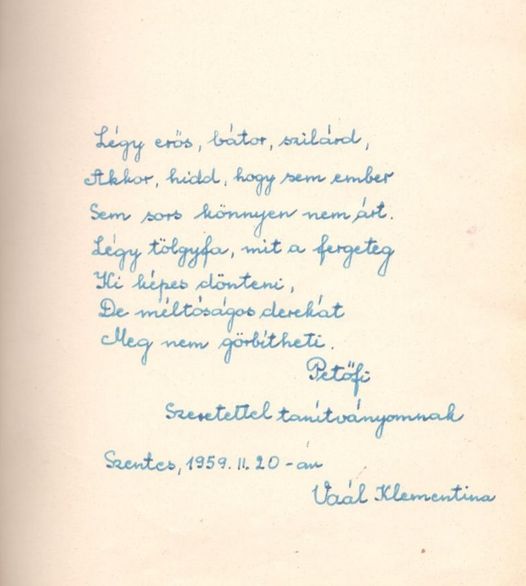 Légy erős, bátor, szilárd,
Akkor, hidd, hogy sem ember
Sem sors könnyen nem árt.
Légy tölgyfa, mit a fergeteg
Ki képes dönteni,
De méltóságos derekát
Meg nem görbítheti.
Petőfi
Szeretettel tanítványomnak
Szentes, 1959. II. 20-án
Vaál Klementina